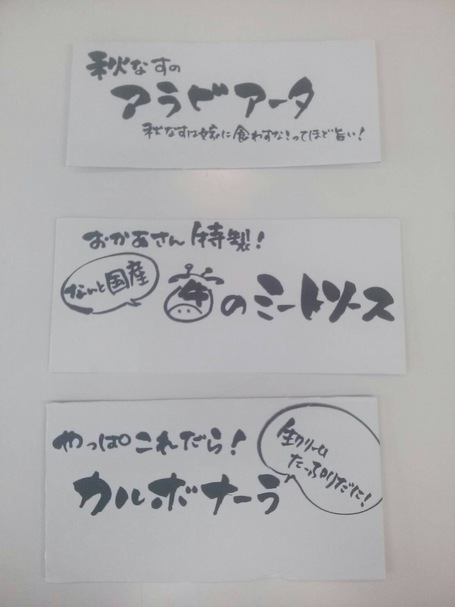 秋なすの
アラビアータ
秋なすは嫁に食わすな!ってほど旨い!
おかあさん特製!
なんと国産
牛のミートソース
やっぱこれだら!
カルボナーラ
生クリーム
たっぷりだに!